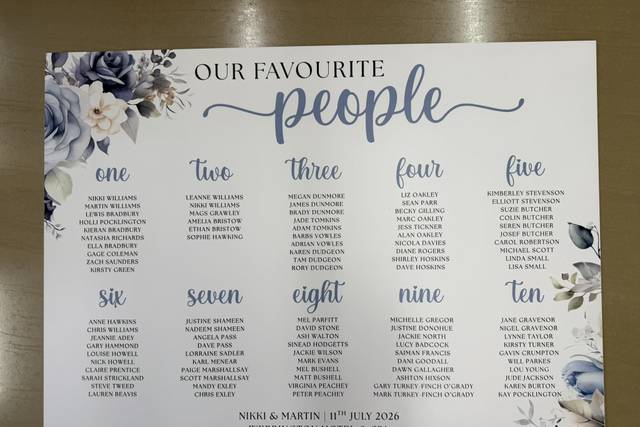 OUR FAVOURITE
people
one
NIKKI WILLIAMS
MARTIN WILLIAMS
LEWIS BRADBURY
HOLLI POCKLINGTON
KIERAN BRADBURY
NATASHA RICHARDS
ELLA BRADBURY
GAGE COLEMAN
ZACH SAUNDERS
KIRSTY GREEN
two
LEANNE WILLIAMS
NIKKI WILLIAMS
MAGS GRAWLEY
AMELIA BRISTOW
ETHAN BRISTOW
SOPHIE HAWKING
three
MEGAN DUNMORE
JAMES DUNMORE
BRADY DUNMORE
JADE TOMKINS
ADAM TOMKINS
BARBS VOWLES
ADRIAN VOWLES
KAREN DUDGEON
TAM DUDGEON
RORY DUDGEON
four
LIZ OAKLEY
SEAN PARR
BECKY GILLING
MARC OAKLEY
JESS TICKNER
ALAN OAKLEY
NICOLA DAVIES
DIANE ROGERS
SHIRLEY HOSKINS
DAVE HOSKINS
five
KIMBERLEY STEVENSON
ELLIOTT STEVENSON
SUZIE BUTCHER
COLIN BUTCHER
SEREN BUTCHER
JOSEF BUTCHER
CAROL ROBERTSON
MICHAEL SCOTT
LINDA SMALL
LISA SMALL
six
ANNE HAWKINS
CHRIS WILLIAMS
JEANNIE ADEY
GARY HAMMOND
LOUISE HOWELL
NICK HOWELL
CLAIRE PRENTICE
SARAH STRICKLAND
STEVE TWEED
LAUREN BEAVIS
seven
JUSTINE SHAMEEN
NADEEM SHAMEEN
ANGELA PASS
DAVE PASS
LORRAINE SADLER
KARL MENEAR
PAIGE MARSHALLSAY
SCOTT MARSHALLSAY
MANDY EXLEY
CHRIS EXLEY
eight
MEL PARFITT
DAVID STONE
ASH WALTON
SINEAD HODGETTS
JACKIE WILSON
MARK EVANS
MEL BUSHELL
MATT BUSHELL
VIRGINIA PEACHEY
PETER PEACHEY
nine
MICHELLE GREGOR
JUSTINE DONOHUE
JACKIE NORTH
LUCY BADCOCK
SAIMAN FRANCIS
DANI GOODALL
DAWN GALLAGHER
ASHTON HIXSON
GARY TURKEY-FINCH O'GRADY
MARK TURKEY-FINCH O'GRADY
Ten
JANE GRAVENOR
NIGEL GRAVENOR
LYNNE TAYLOR
KIRSTY TURNER
GAVIN CRUMPTON
WILL PARKES
LOU YOUNG
JUDE JACKSON
KAREN BURTON
KAY POCKLINGTON
NIKKI & MARTIN | 11TH JULY 2026